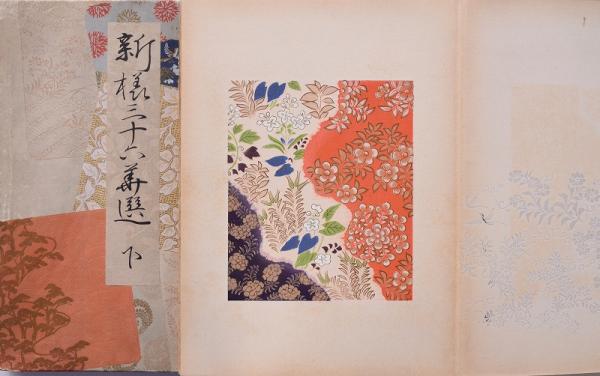 新様三十六華選 下